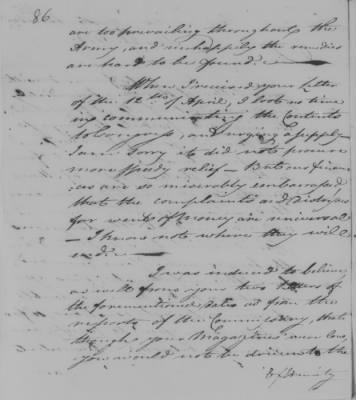 86
are too prevailing throughout the
Army, and unhappily the remedies
are hard to be found.
When I received your Letter
of the 12th of April, I lost no time
in communicating the Contents
to Congress, and urging a supply.
I am sorry it did not procure
more speedy relief — But our finan
ces are so miserably embarrassed
that the complaints and distresses
for want of money are universal
— I know not where they will
end. —
I was induced to believe
as well from your two letters of
the forementioned dates as from the
reports of the Commissary, that
though your Magazines were low,
you would not be driven to the